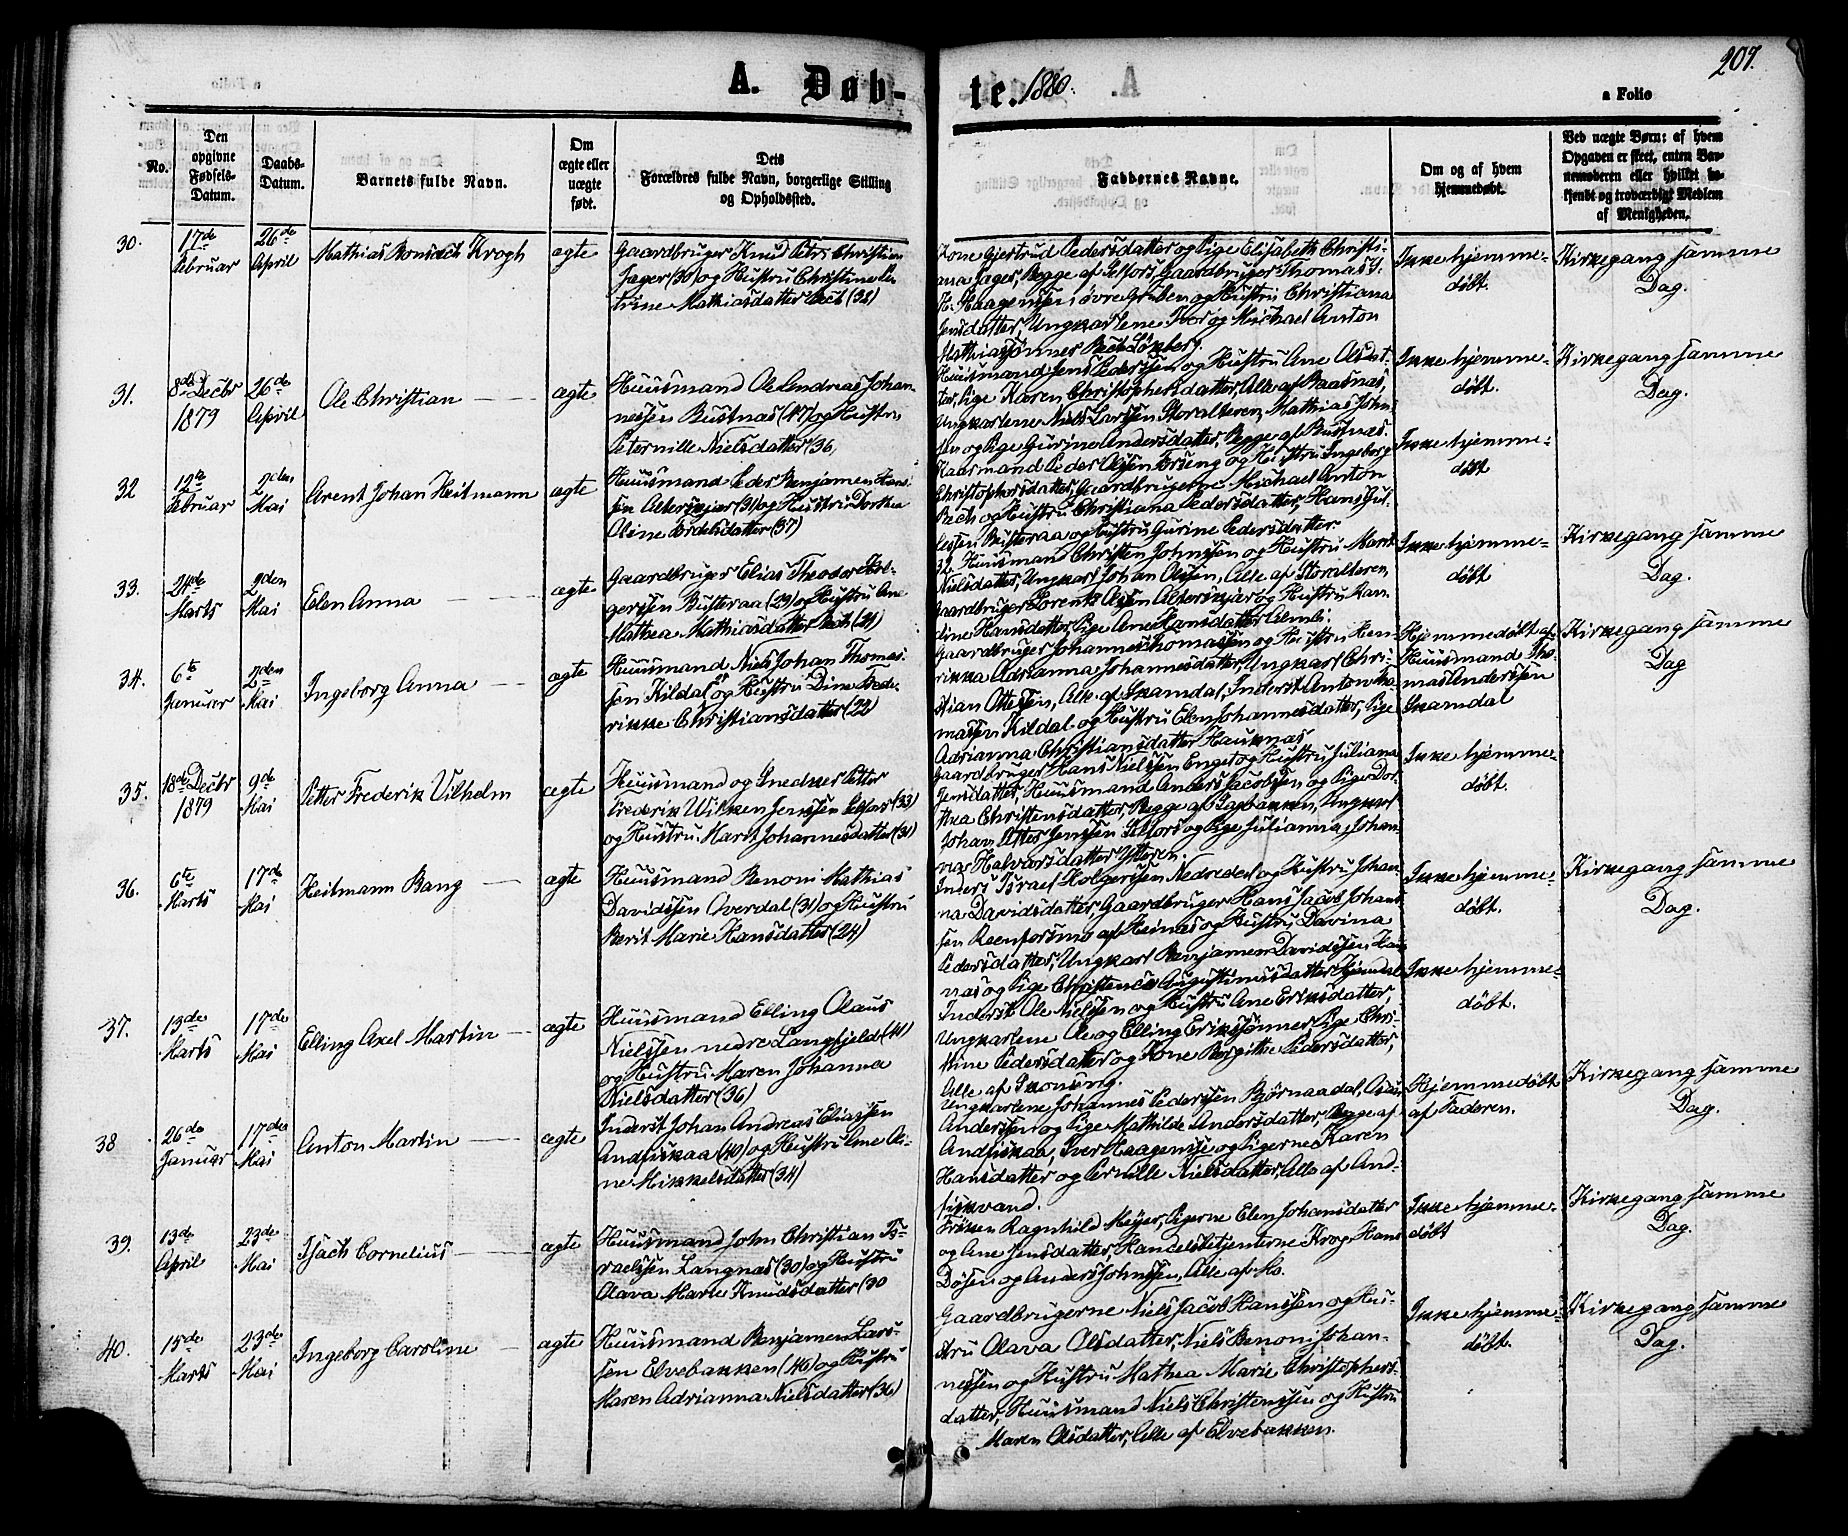 207.
A. Døb-
te. 1880.
a Folio
No.
Den opgivne Fødsels-Datum.
Daabs-Datum.
Barnets fulde Navn.
Om ægte eller uægte født.
Dets Forældres fulde Navn, borgerlige Stilling og Opholdssted.
Faddernes Navne.
Om og af hvem hjemmedøbt.
Ved uægte Børn: af hvem Opgaven er skeet, enten Barnemoderen eller hvilket bekjendt og troværdigt Medlem af Menigheden.
30.
17de Februar
26de April
Mathias Krogh
ægte
Gaardbruger Knud Peter Christian
Jager (30) og Hustru Christine Ca-
trine Mathiasdatter Bech (28)
Kone Gjertrud Pedersdatter og Pige Elisabeth Christi-
ana Jager, Begge af Selfors, Gaardbruger Thomas J.
H. Haagensen, øvre Gruben og Hustru Christiana
Jensdatter, Ungkarlene Iver og Michael Anton
Mathiassønner Bech
Ikke hjemme-
døbt.
Kirkegang samme
Dag.
31.
8de Decbr 1879
26de April
Ole Christian
ægte
Huusmand Ole Andreas Johan-
nessen Bustnæs (47) og Hustru
Peternille Nielsdatter (36,
Huusmand Jens Pedersen og Hustru Ane Olsdat-
ter, Pige Karen Christophersdatter, Alle af Baasnæs,
Ungkarlene Niels Larssen Storalteren, Mathias John-
sen og Pige Gurine Andersdatter, Begge af Bustnæs.
Ikke hjemme-
døbt.
Kirkegang samme
Dag.
32
12te Februar
2den Mai
Arent Johan Heitmann
ægte
Huusmand Peder Benjamen Han-
sen Alterskjær (31) og Hustru Dorthea
Oline Bordelsdatter (37)
Kaarmand Peder Olssen Forseng og Hustru Ingeborg
Christophersdatter, Gaardbrugerne Michael Anton
Bech og Hustru Christiana Pedersdatter, Hans Jul-
lessen Busteraa og Hustru Gurine Pedersdatter.
Ikke hjemme-
døbt
33.
24de Marts
2den Mai
Elen Anna
ægte
Gaardbruger Elias Theodor Hol-
gerssen Busteraa (29) og Hustru Ane
Mathea Mathiasdatter Bech (21)
32, Huusmand Christen Johnssen og Hustru Marit
Nielsdatter, Ungkarl Johan Olssen, Alle af Storalteren,
Gaardbruger Lorents Olssen Alterskjær og Hustru Ran-
dine Hansdatter, Pige Ane Hansdatter Almli.
Ikke hjemme-
døbt
Kirkegang samme
Dag.
34.
6te Januar
2den Mai
Ingeborg Anna
ægte
Huusmand Niels Johan Thomas-
sen Kildal og Hustru Dina Frede-
rikke Christiansdatter (22)
Gaardbruger Johannes Thomassen og Hustru Hen-
rikka Adrianna Johannesdatter, Ungkarl Chri-
stian Ottesen, Alle af Skamdal, Inderst Anton Tho-
massen Kildal og Hustru Elen Johannesdatter, Pige
Adrianna Christiansdatter Hauknæs
Hjemmedøbt af
Huusmand Tho-
mas Anderssen
Skamdal
Kirkegang samme
Dag
35.
18de Decbr 1879
9de Mai
Petter Frederik Vilhelm
ægte
Huusmand og Snedker Petter
Frederik Wilken Jenssen Selfors (33)
og Hustru Marit Johannesdatter (31)
Gaardbruger Hans Nielssen Enget og Hustru Juliana
Jensdatter, Huusmand Anders Jacobsen og Pige Dor-
thea Christensdatter, Begge af Ungkarl
Johan Petter Jenssen Selfors og Pige Julianna Johan-
na Halvorsdatter Ytteren.
Ikke hjemme-
døbt.
36.
6te Marts
17de Mai
Heitmann Bang
ægte
Huusmand Benoni Mathias
Davidssen Averdal (31) og Hustru
Berit Marie Hansdatter (24)
Inderst Israel Holgerssen Nedredal og Hustru Johan-
na Davidsdatter Gaardbruger Hans Jacob Johans-
sen Reenforsmo af Hemnes og Hustru Davina
Pedersdatter, Ungkarl Benjamen Davidssen
og Pige Christence Augustinusdatter
Ikke hjemme-
døbt.
Kirkegang samme
Dag.
37.
13de Marts
17de Mai
Elling Axel Martin
ægte
Huusmand Elling Olaus
Nielssen nedre Langfjeld (41)
og Hustru Maren Johanna
Nielsdatter (36)
Inderst Ole Nielssen og Hustru Ane Eriksdatter,
Ungkarlene Ole og Elling Erikssønner, Pige Chri-
stine Pedersdatter og Kone Birgithe Pedersdatter,
Alle af
Ikke hjemme-
døbt.
38
26de Januar
17de Mai
Anton Martin
ægte
Inderst Johan Andreas Eliassen
Andfiskaa (40) og Hustru Ane Oli-
ne Mikkelsdatter (34)
Ungkarlene Johannes Pederssen Bjørnaadal,
Anderssen og Pige Mathilde Andersdatter, Begge af
Andfiskaa, Iver Haagensen og Pigerne Karen
Hansdatter og Pernille Nielsdatter, Alle af And-
fiskvand.
Hjemmedøbt
af Faderen.
Kirkegang samme
Dag.
39.
13de April
23de Mai
Isach Cornelius
ægte
Huusmand John Christian Is-
raelssen Langnæs (30) og Hustru
Olava Marie Knudsdatter (30
Frøken Ragnhild Meyer, Pigerne Elen Johansdatter
og Ane Jensdatter, Handelsbetjenterne Krog, Hans
Døsen og Anders Johnssen, Alle af Mo.
Ikke hjemme-
døbt
Kirkegang samme
Dag.
40.
15de Marts
23de Mai
Ingeborg Caroline
ægte
Huusmand Benjamen Lars-
sen Elvebakken (46) og Hustru
Maren Adrianna Nielsdatter (36)
Gaardbrugerne Niels Jacob Hanssen og Hu-
stru Olava Olsdatter, Niels Benoni Johan-
nessen og Hustru Mathea Marie Christophers-
datter, Huusmand Niels Christenssen og Hustru
Maren Olsdatter, Alle af Elvebakken.
Ikke hjemme-
døbt.
Kirkegang samme
Dag.